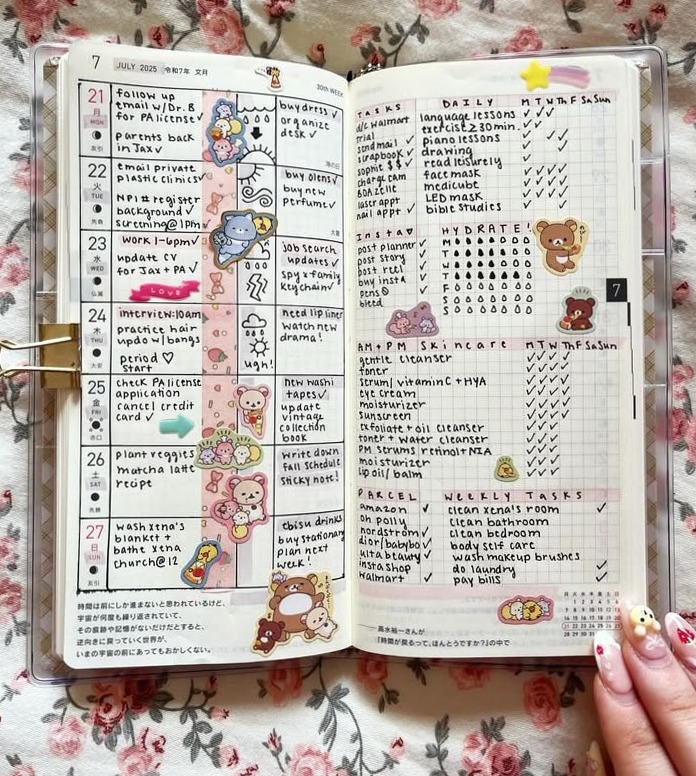 7 JULY 2025 令和7年 文月
30th WEEK
21
月
MON
友引
follow up
email w/Dr. B
for PA license ✓
parents back
in Jax ✓
buy dress ✓
organize
desk ✓
海の日
22
火
TUE
先負
email private
plastic clinics ✓
NPI # register
background ✓
screening @ 1pm ✓
buy olens ✓
buy new
perfume ✓
大暑
23
水
WED
仏滅
work 1-6pm ✓
update CV
for Jax + PA ✓
LOVE
job search
updates ✓
spy x family
keychain ✓
24
木
THU
大安
interview: 10am
practice hair
updo w/bangs
period ♡
start
ugh!
need lip liner
watch new
drama!
25
金
FRI
赤口
check PA license
application
cancel credit
card ✓
new washi
tapes ✓
update
vintage
collection
book
26
土
SAT
先勝
plant veggits
matcha latte
recipe
write down
fall schedule
sticky note!
27
日
SUN
友引
wash xena's
blanket +
bathe xena
church @ 12
ebisu drinks
buy stationary
plan next
week!
時間は前にしか進まないと思われているけど、
宇宙が何度も繰り返されていて、
その痕跡や記憶がないだけだとすると、
逆向きに戻っていく世界が、
いまの宇宙の前にあってもおかしくない。
TASKS
d/c walmart
trial
send mail ✓
scrapbook ✓
sophie $$ ✓
charge cam
laser appt
nail appt ✓
DAILY M T W Th F Sa Sun
language lessons ✓ ✓ ✓
exercise ≥ 30min. ✓
piano lessons ✓ ✓
drawing ✓
read leisurely
face mask ✓ ✓ ✓ ✓
medicube ✓ ✓ ✓ ✓
LED mask ✓ ✓ ✓ ✓
bible studies ✓ ✓
Insta ♡
post planner ✓
post story ✓
post reel ✓
buy insta ✓
pens
bleed
HYDRATE!
M
T
W
T
F
S
S
7
AM + PM Skincare M T W Th F Sa Sun
gentle cleanser
toner
serum / vitamin C + HYA
eye cream
moisturizer
sunscreen
exfoliate + oil cleanser
toner + water cleanser
PM serums retinol + NIA
moisturizer
lip oil / balm
PARCEL
amazon ✓
oh polly
nordstrom ✓
dior/babyboo ✓
ulta beauty ✓
insta shop
walmart ✓
Weekly Tasks
clean xena's room ✓
clean bathroom
clean bedroom
body self care
wash makeup brushes
do laundry ✓
pay bills ✓
高水裕一さんが
『時間が戻るって、ほんとうですか？』の中で